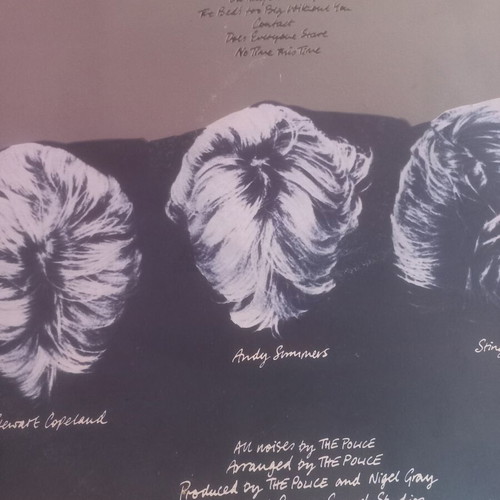 The Bed's too Big Without You
Contact
Does Everyone Stare
No Time This Time
Andy Summers
Sting
Stewart Copeland
All noises by THE POLICE
Arranged by THE POLICE
Produced by THE POLICE and Nigel Gray